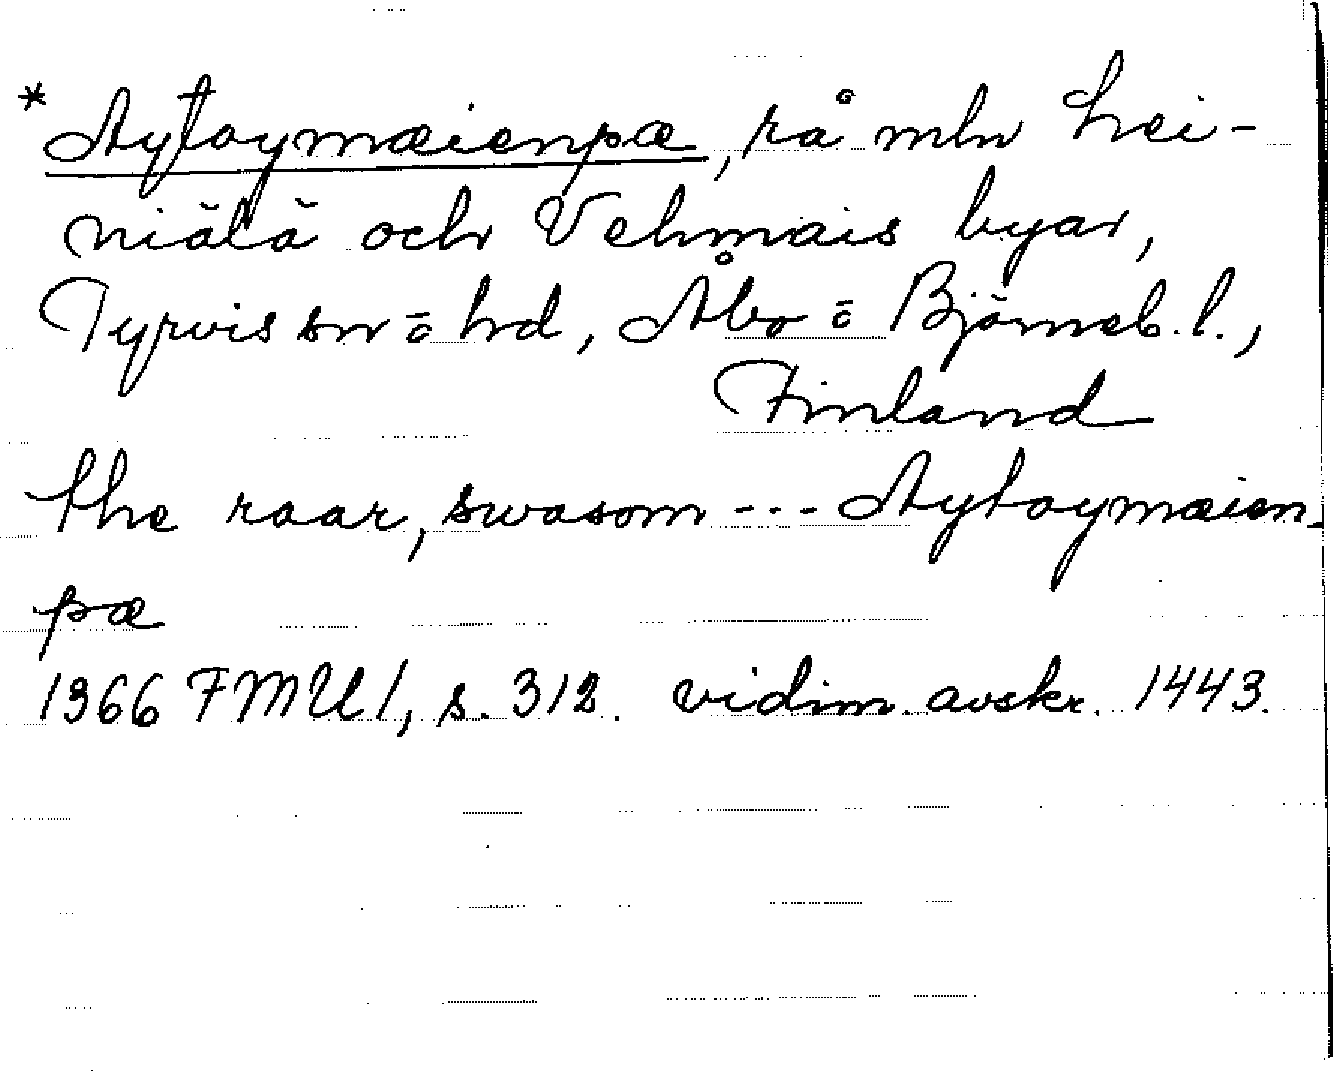 *Aytoymæienpæ, rå mln Hei-
niälä och Vehmais byar,
Tyrvis sn ō hd, Åbo ō Björneb. l.,
Finland
the raar, swasom --- Aytoymæien-
pæ
1366 FMU 1, s. 312. vidim. avskr. 1443.